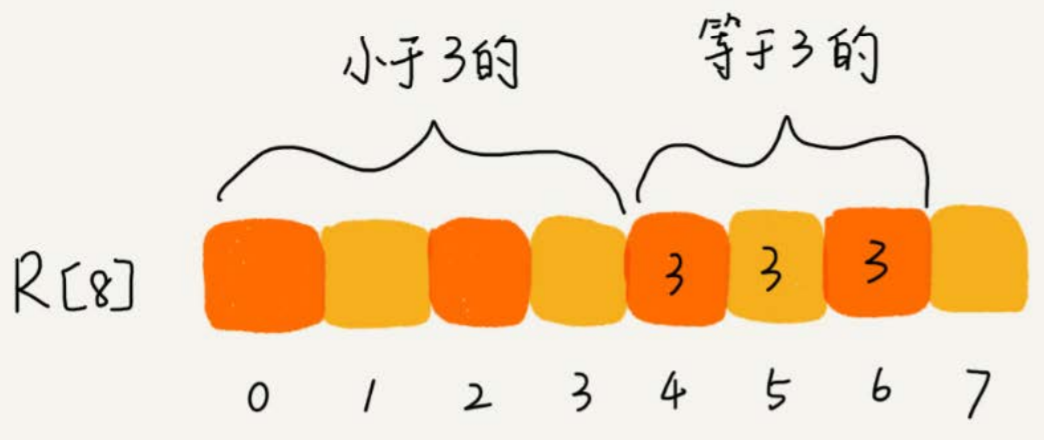 小于3的 等于3的
R[8] 3 3 3
0 1 2 3 4 5 6 7